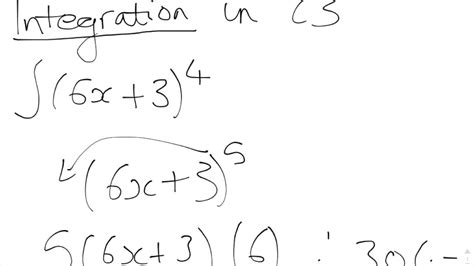 Integration in C3
∫(6x+3)⁴
(6x+3)⁵
5(6x+3)(6) ∴ 30(